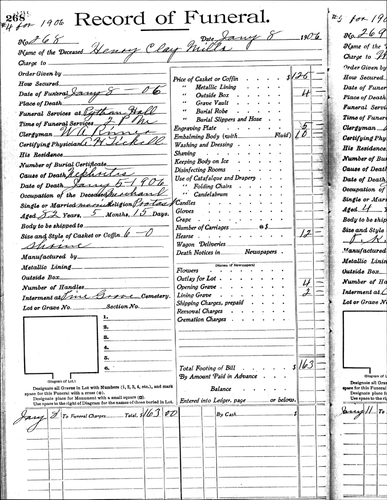 268
#4 for 1906
Record of Funeral.
No. 268 Date Jany 8 1906
Name of the Deceased Henry Clay Mills
Charge to
Order Given by
How Secured
Date of Funeral Jany 8 - 06
Place of Death
Funeral Services at Pythian Hall
Time of Funeral Services 2 P M.
Clergyman W A
Certifying Physician
His Residence
Number of Burial Certificate
Cause of Death Nephritis
Date of Death Jany 5 1906
Occupation of the Deceased Merchant
Single or Married Religion
Aged 82 Years, 5 Months, 15 Days.
Body to be shipped to
Size and Style of Casket or Coffin 6-0
Manufactured by
Metallic Lining
Outside Box
Number of Handles
Interment at Grove Cemetery.
Lot or Grave No. Section No.
1.
2.
3.
4.
5.
6.
(Diagram of Lot.)
Designate all Graves in Lot with Numbers (1, 2, 3, 4, etc.), and mark
space for this Funeral with a cross (x).
Designate place for Monument with a small square (□).
Use space to the right of Diagram for the names of those buried in Lot.
Price of Casket or Coffin $ 125
" Metallic Lining
" Outside Box 4
" Grave Vault
" Burial Robe
" Burial Slippers and Hose
Engraving Plate 5
Embalming Body (with Fluid) 10
Washing and Dressing
Shaving
Keeping Body on Ice
Disinfecting Rooms
Use of Catafalque and Drapery
" Folding Chairs
" Candelabrum
Candles
Gloves
Crape
Number of Carriages @ $
Hearse 12
Wagon Deliveries
Death Notices in Newspapers
(Names of Newspapers)
Flowers
Outlay for Lot
Opening Grave 4
Lining Grave 2
Shipping Charges, prepaid
Removal Charges
Cremation Charges
Total Footing of Bill $ 163
By Amount Paid in Advance
Balance
Entered into Ledger, page or below.
Jany To Funeral Charges Total, $ 163 00 By Cash $
#5 for 190
269
No. 269
Name of the
Charge to
Order Given
How Secured
Date of Funer
Place of Death
Funeral Servic
Time of Funer
Clergyman
Certifying Phy
His Residence
Number of Bu
Cause of Death
Date of Death
Occupation of
Single or Marr
Aged 4
Body to be ship
Size and Style
Manufactured
Metallic Lining
Outside Box
Number of Ha
Interment at
Lot or Grave
(Diagram
Designate all
space for this
Designate p
Use space to the
Jany 11